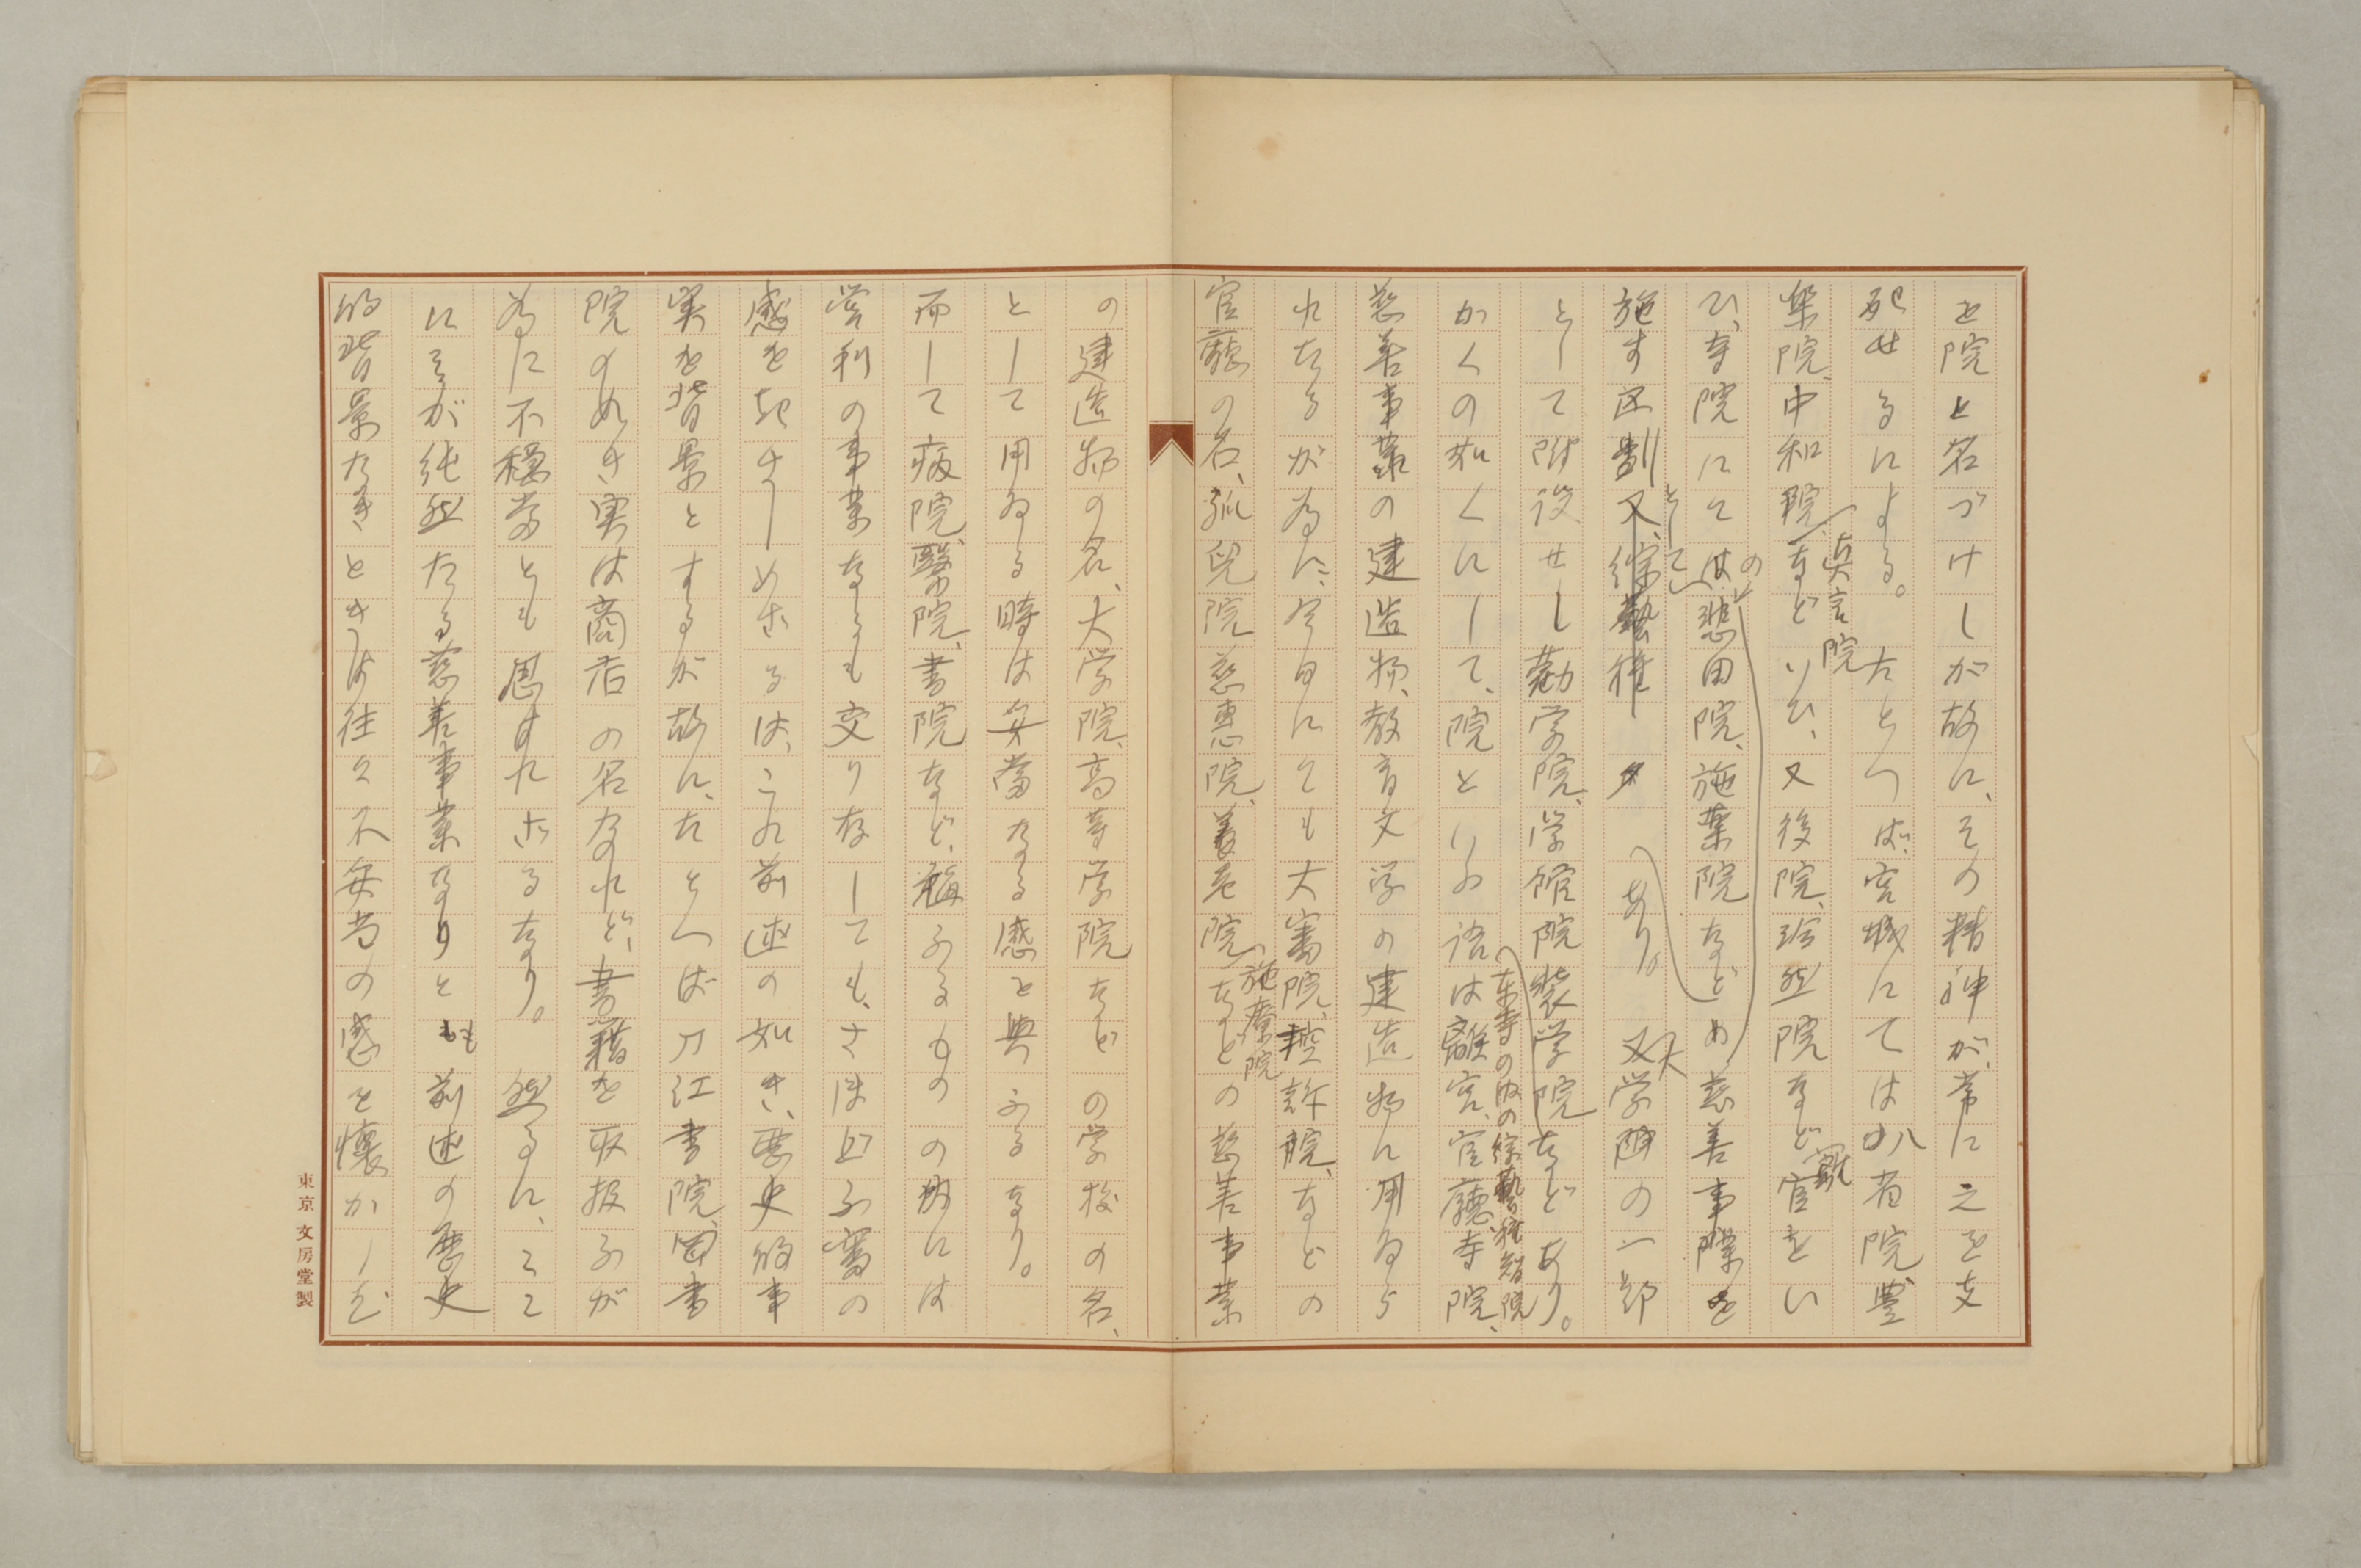 を院と名づけしが故に、その精神が、常に之を支
配せるによる。たとへば、宮城にては八省院豊
楽院、中和院、真言院などいひ、又後院、冷然院など離宮をい
ひ、寺院にては、悲田院、施薬院などの慈善事業を
施す区劃として又綜藝種あり。又大学附の一部
として附設せし勧学院、学館院奨学院などあり。
東寺の内の綜藝種智院
かくの如くにして、院といふ語は離宮、官廳、寺院、
慈善事業の建造物、教育文学の建造物に用ゐら
れたるが為に、今日にても大審院、控訴院、などの
官廳の名、孤児院慈恵院、養老院、施療院などの慈善事業
の建造物の名、大学院、高等学院などの学校の名、
として用ゐる時は妥當なる感を與ふるなり。
而して病院、醫院、書院など、稱ふるものの内には
営利の事業なるも交り存しても、さほど不審の
感を起さしめざるは、これ前述の如き、歴史的事
実を背景とするが故に、たとへば刀江書院、図書
院の如き実は商店の名なれど、書籍を取扱ふが
為に不穏當とも思はれざるなり。然るに、ここ
にそが純然たる慈善事業なりとも前述の歴史
的背景なきときは往々不妥当の感を懐かしむ
東京 文房堂製